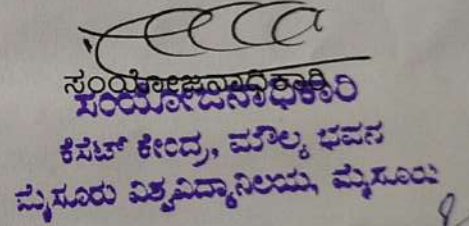 ಸಂಯೋಜನಾಧಿಕಾರಿ
ಸಂಯೋಜನಾಧಿಕಾರಿ
ಕೆಸೆಟ್ ಕೇಂದ್ರ, ಮೌಲ್ಯ ಭವನ
ಮೈಸೂರು ವಿಶ್ವವಿದ್ಯಾನಿಲಯ, ಮೈಸೂರು